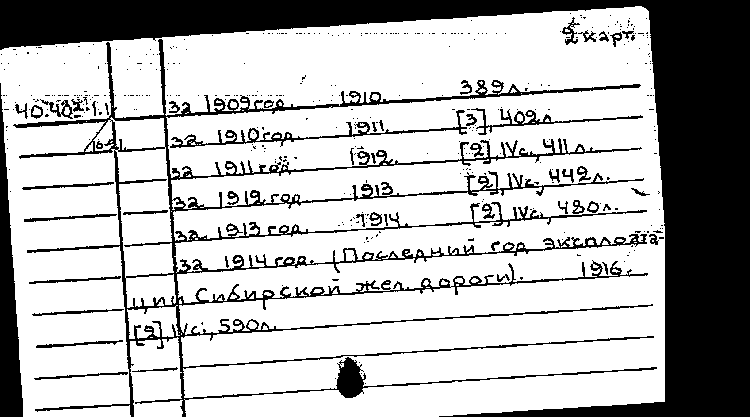 2 карт.
за 1909 год. 1910. 389 л.
за 1910 год. 1911. [3], 402 л
за 1911 год. 1912. [2], IVс., 411 л.
за 1912 год. 1913. [2], IVс., 442 л.
за 1913 год. 1914. [2], IVс., 480 л.
за 1914 год. (Последний год эксплоата-
ции Сибирской жел. дороги). 1916.
[2], IVс., 590 л.